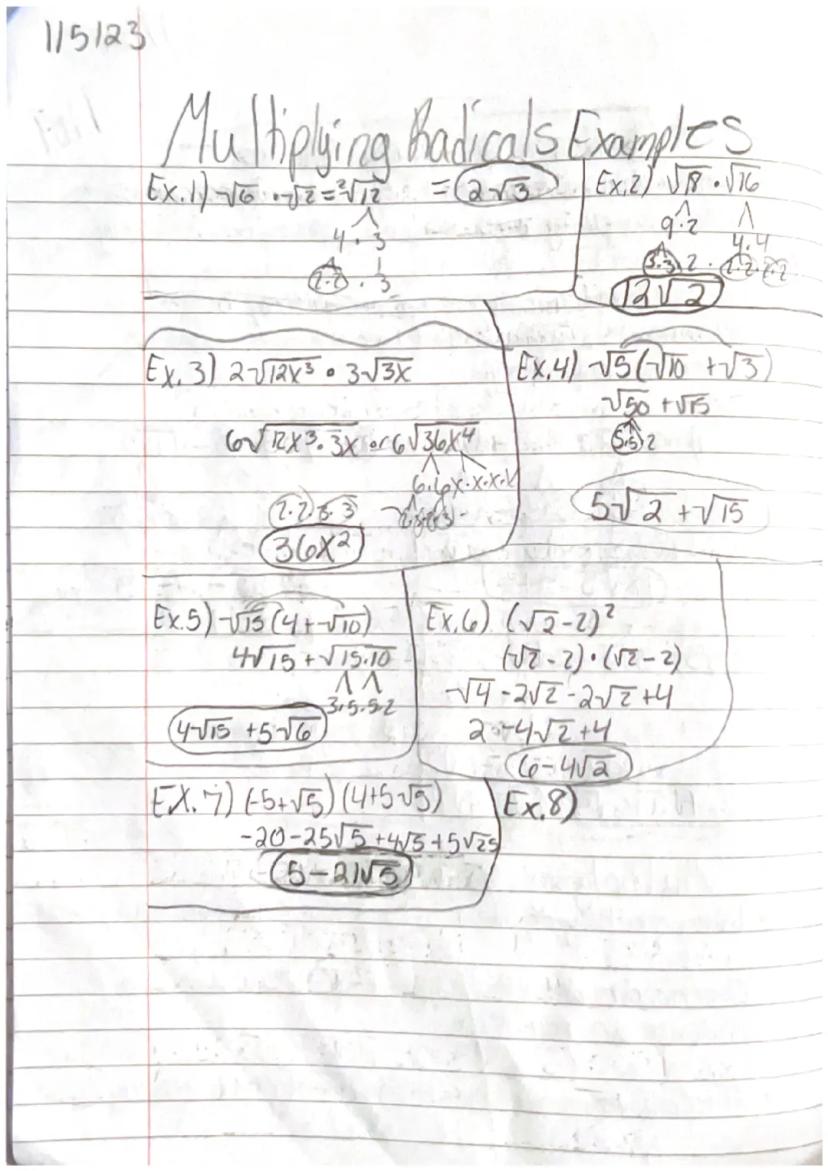 1/5/23
Multiplying Radicals Examples
Ex.1) √6 · √2 = ²√12 = 2√3
4 · 3
2·2 · 3
Ex.2) √18 · √16
9·2 4·4
3·3 · 2 · 2·2 · 2·2
12√2
Ex. 3) 2√12x³ · 3√3x
6√12x³·3x or 6√36x⁴
6·6 x·x·x·x
2·2·3·3
36x²
Ex.4) √5(√10 + √3)
√50 + √15
5·5·2
5√2 + √15
Ex.5) √15 (4+√10)
4√15 + √15·10
3·5·5·2
4√15 + 5√6
Ex.6) (√2-2)²
(√2-2)·(√2-2)
√4 -2√2 -2√2 +4
2 -4√2 +4
6-4√2
Ex. 7) (-5+√5)(4+5√5)
-20-25√5+4√5+5√25
5-21√5
Ex.8)